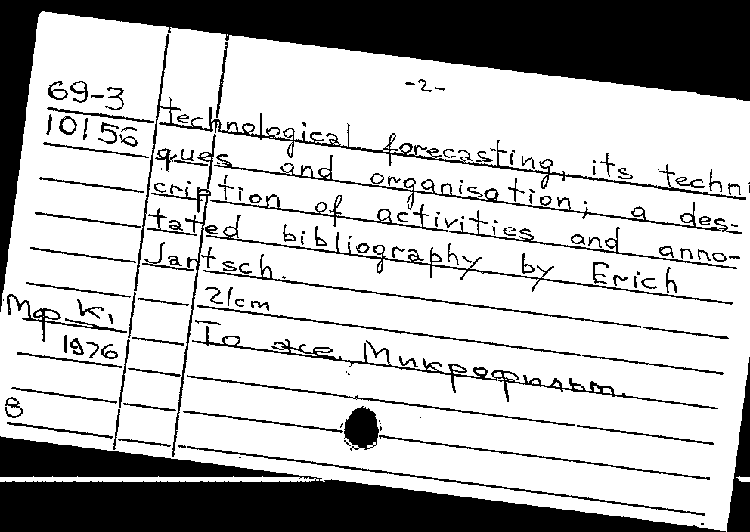 -2-
69-3
10156
technological forecasting, its techni
ques and organisation; a des-
cription of activities and anno-
tated bibliography by Erich
Jantsch.
21cm
Мф К1
1976
То же. Микрофильм.
8